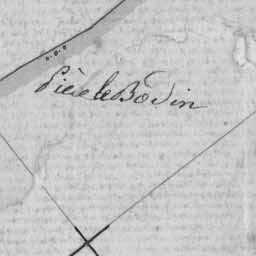 Pièce le Bodin